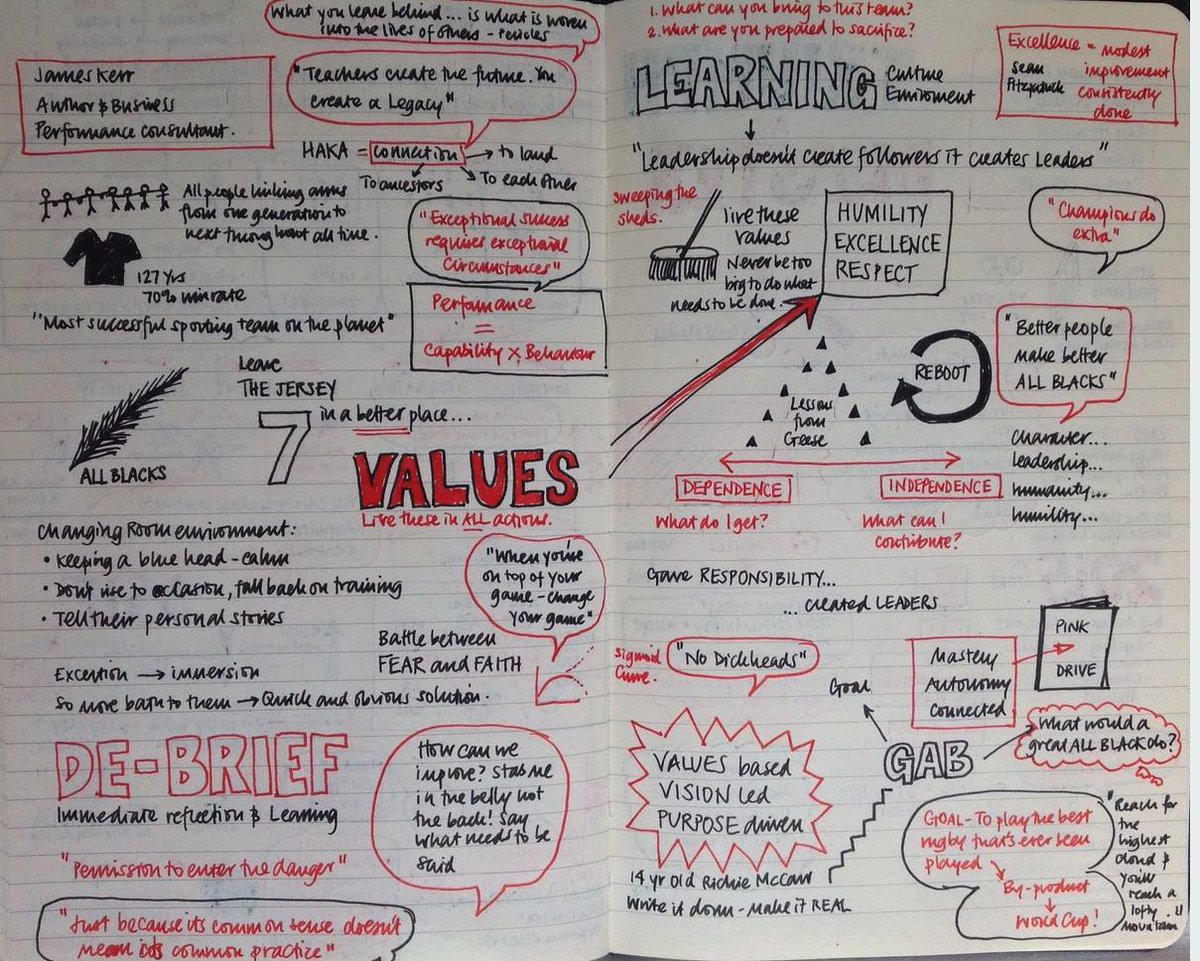 What you leave behind... is what is woven
into the lives of others - Pericles
James Kerr
Author & Business
Performance consultant.
"Teachers create the future. You
create a Legacy"
HAKA = connection → to land
To ancestors
To each other
All people linking arms
from one generation to
next throughout all time.
127 yrs
70% win rate
"Most successful sporting team on the planet"
"Exceptional success
requires exceptional
circumstances"
Performance
=
Capability x Behaviour
Leave
THE JERSEY
in a better place...
ALL BLACKS
7
VALUES
Live these in ALL actions.
Changing Room environment:
• Keeping a blue head - calm
• Don't rise to occasion, fall back on training
• Tell their personal stories
"When you're
on top of your
game - change
your game"
Battle between
FEAR and FAITH
→ immersion
So more bath to them → Quick and obvious solution.
DE-BRIEF
Immediate reflection & Learning
"Permission to enter the danger"
"Just because its common sense doesn't
mean its common practice"
How can we
improve? Stab me
in the belly not
the back! Say
what needs to be
said
1. What can you bring to this team?
2. What are you prepared to sacrifice?
LEARNING
Culture
Enviroment
Excellence = modest
Sean improvement
Fitzpatrick consistently
done
"Leadership doesn't create followers it creates Leaders"
Sweeping the
sheds.
live these
values
Never be too
big to do what
needs to be done.
HUMILITY
EXCELLENCE
RESPECT
"Champions do
extra"
Lessons
from
Greese
REBOOT
"Better people
make better
ALL BLACKS"
Character...
leadership...
humanity...
humility...
DEPENDENCE
INDEPENDENCE
What do I get?
What can I
contribute?
Gave RESPONSIBILITY...
...created LEADERS
Sigmoid
Curve.
"No Dickheads"
Goal
Mastery
Autonomy
Connected
PINK
DRIVE
GAB
What would a
great ALL BLACK do?
VALUES based
VISION led
PURPOSE driven
14 yr old Richie McCaw
Write it down - Make it REAL
GOAL - To play the best
rugby that's ever been
played
By-product
World Cup!
"Reach for
the
highest
cloud &
you'll
reach a
lofty
mountain"